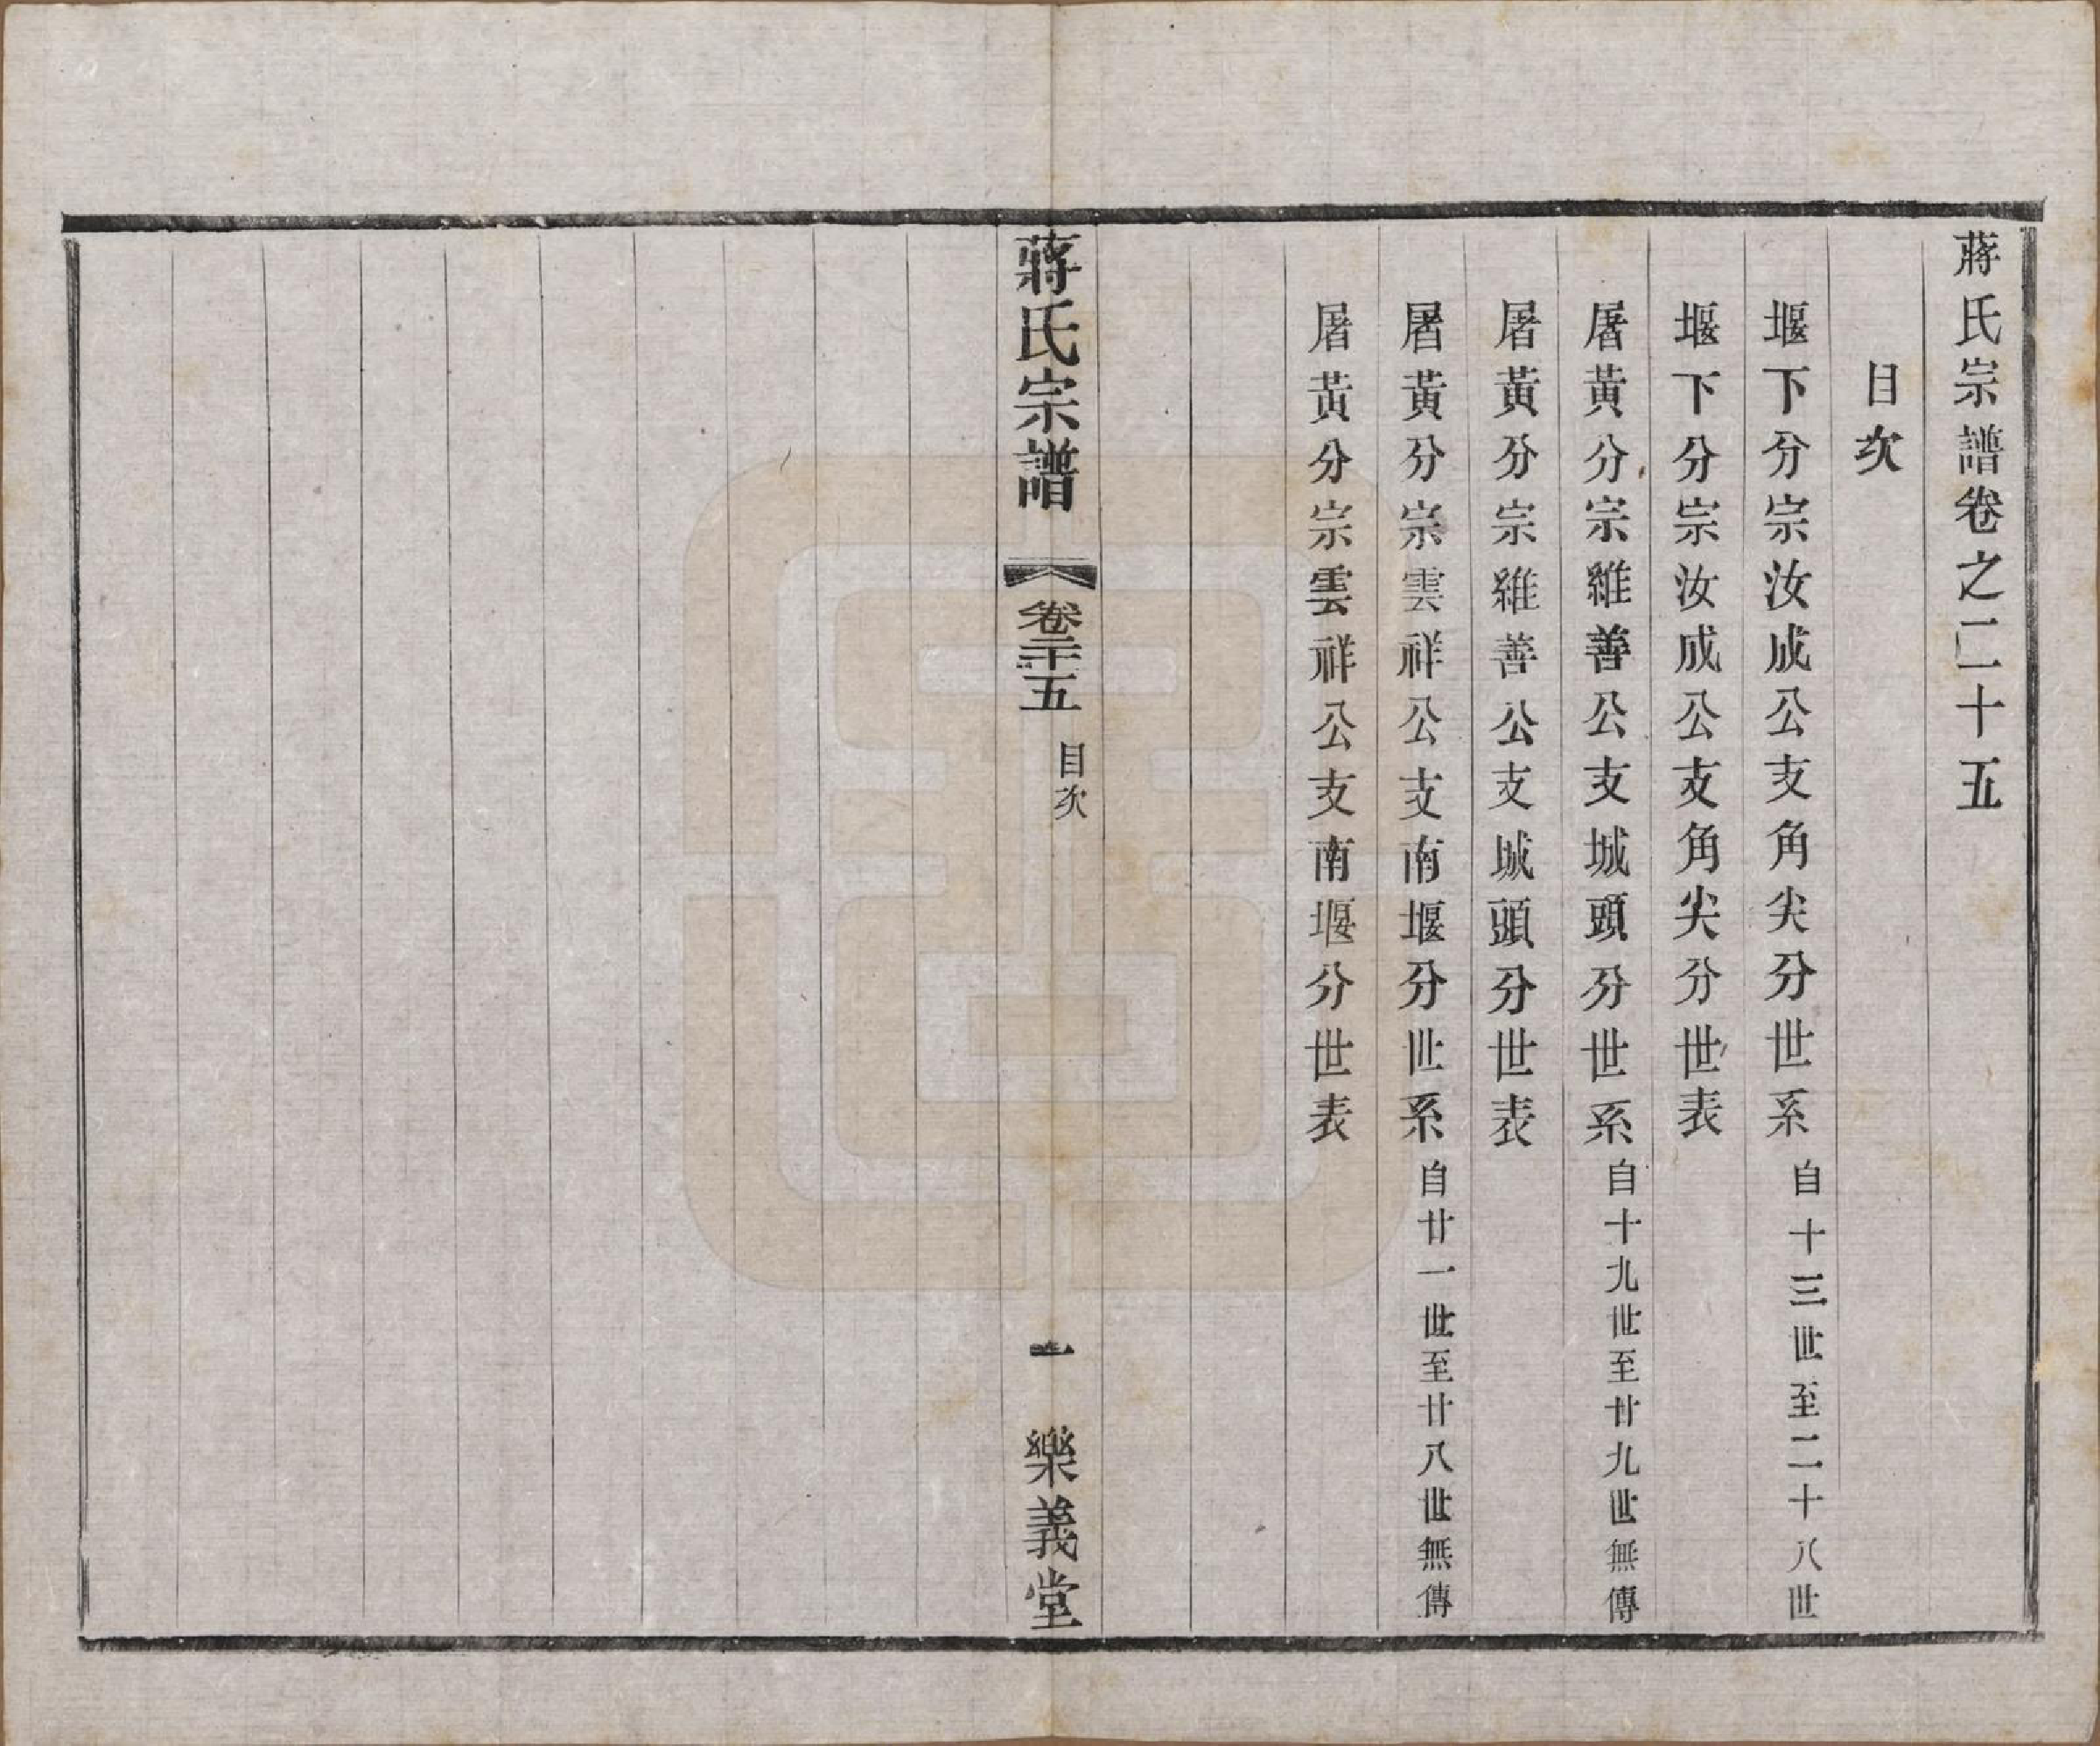 蔣氏宗譜卷之二十五
目次
堰下分宗汝成公支角尖分世系自十三世至二十八世
堰下分宗汝成公支角尖分世表
屠黃分宗維善公支城頭分世系自十九世至廿九世無傳
屠黃分宗維善公支城頭分世表
屠黃分宗雲祥公支南堰分世系自廿一世至廿八世無傳
屠黃分宗雲祥公支南堰分世表
蔣氏宗譜 卷二十五 目次 一 樂義堂